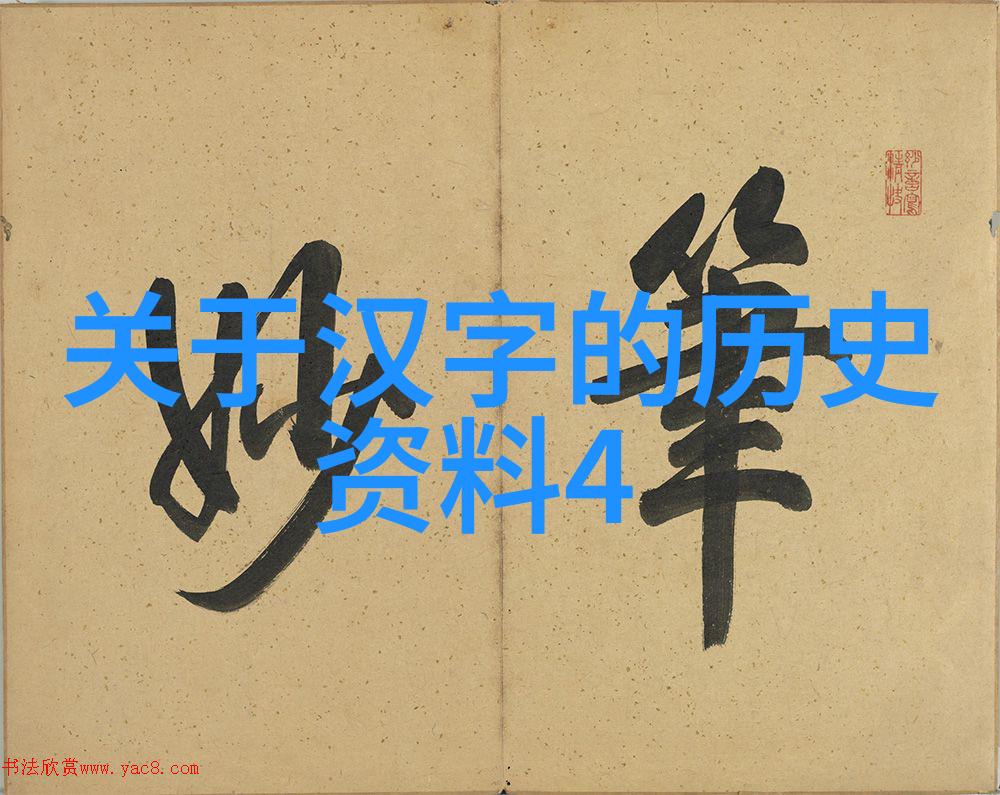 关于汉字的历史
资料4
筆
妙
书法欣赏www.yac8.com